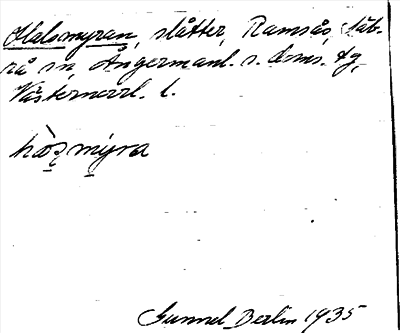 Halsmyran, slåtter, Ramsås, Säb-
rå sn, Ångermanl. s. doms. tg,
Västernorrl. l.
hòʂmýra
Gunnel Berlin 1935